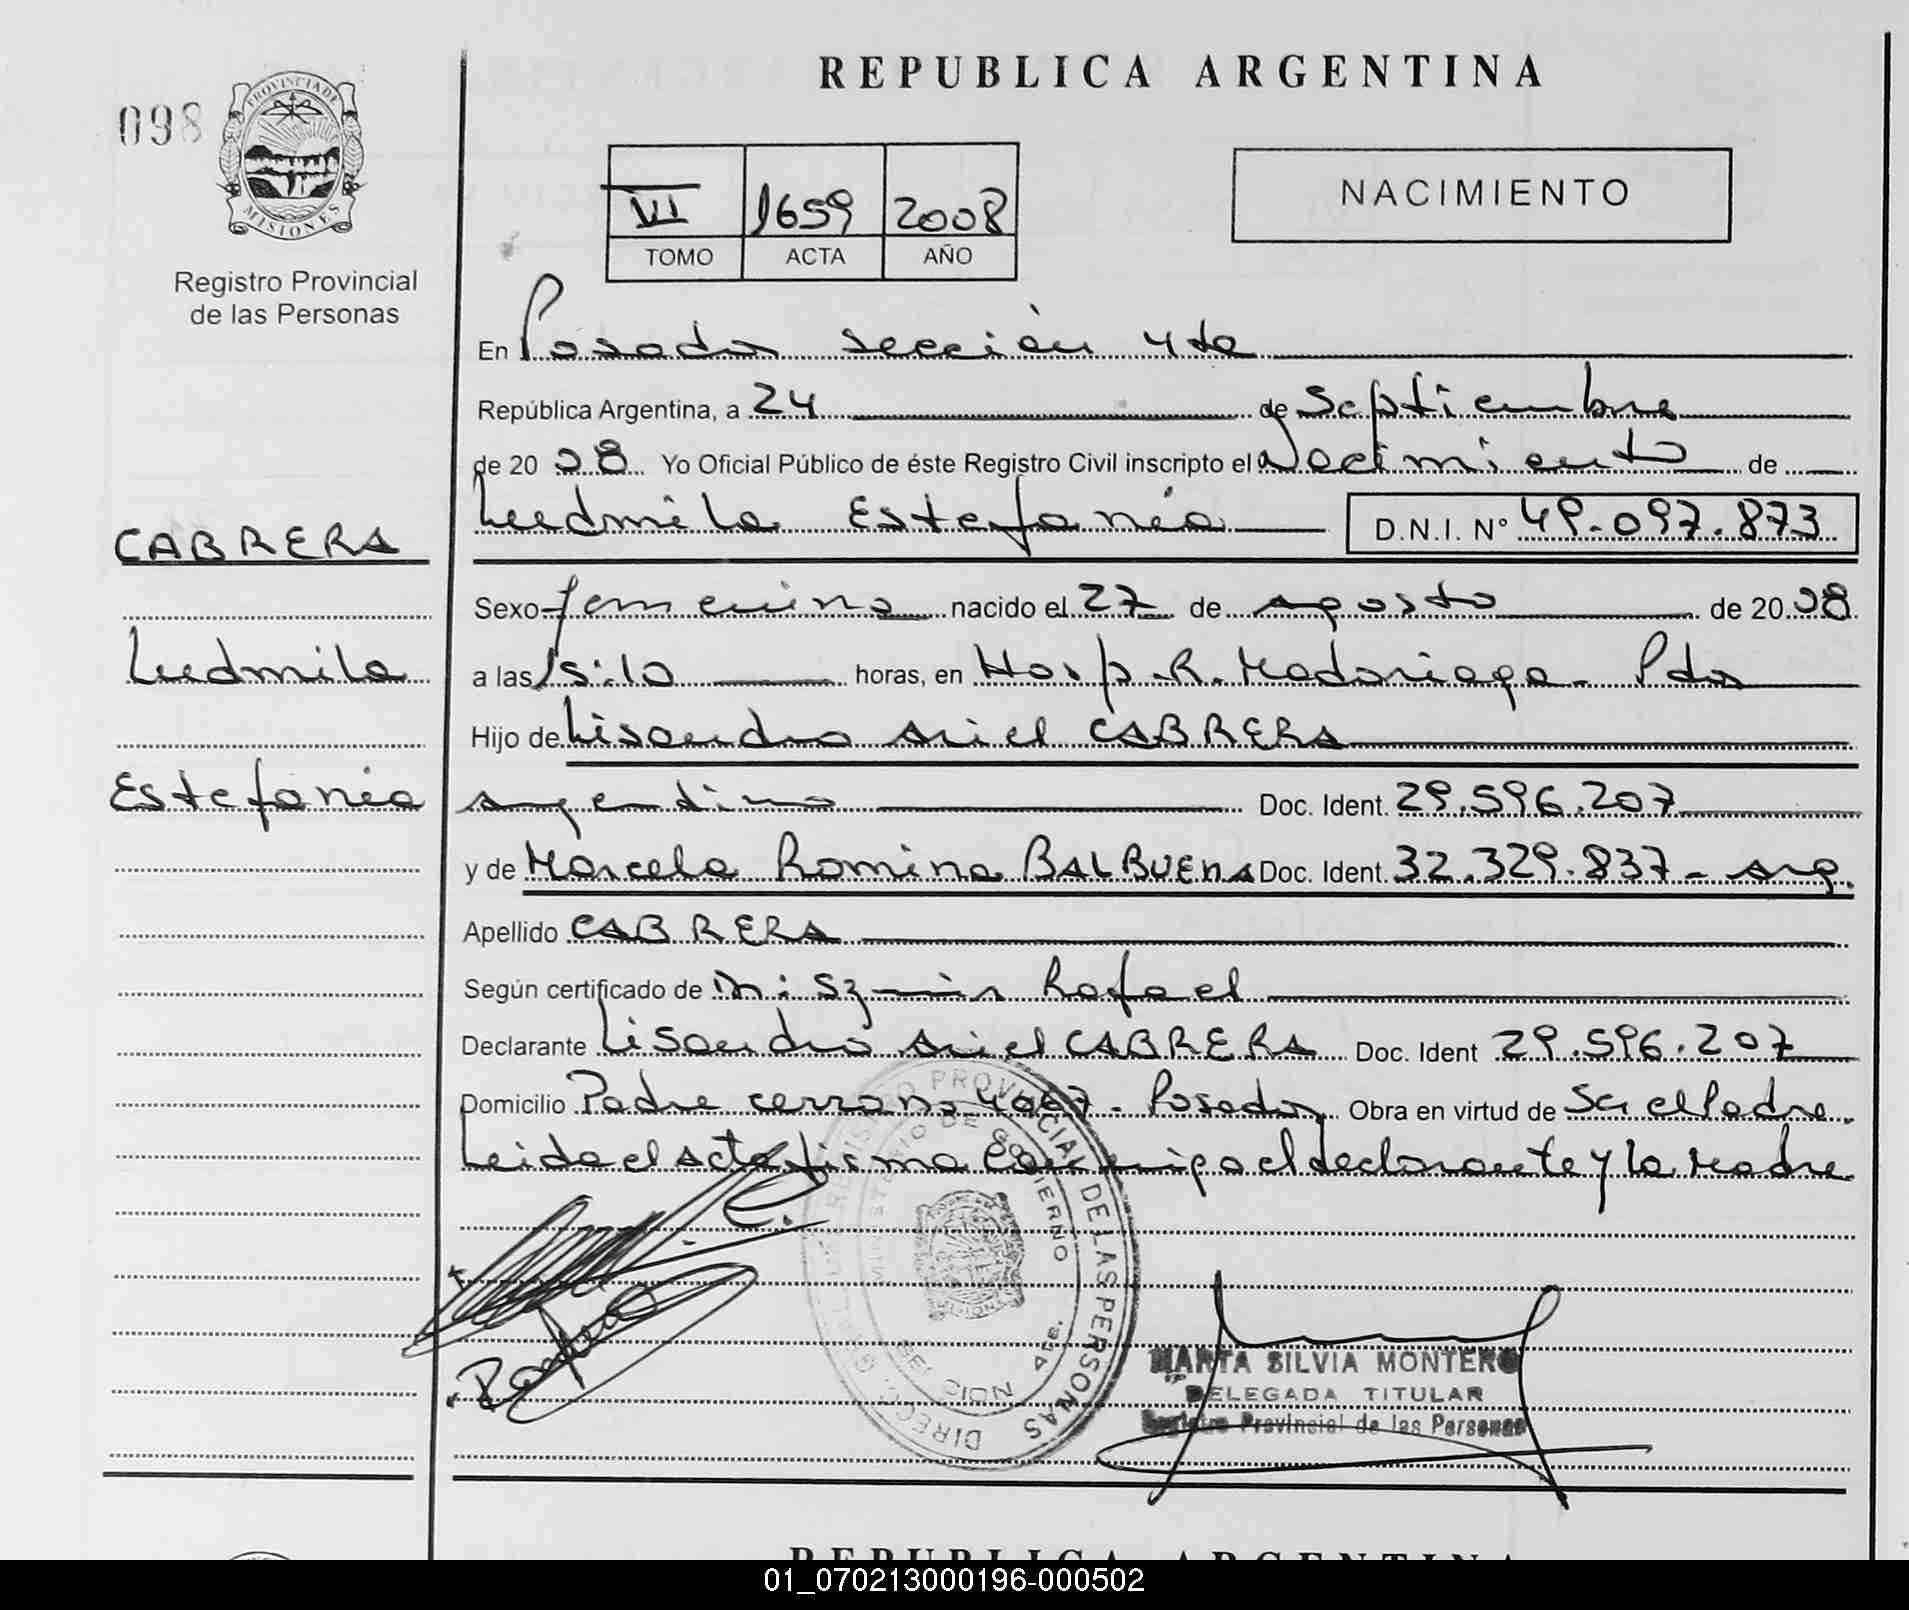 REPUBLICA ARGENTINA
098
PROVINCIA DE
MISIONES
Registro Provincial
de las Personas
VI 1659 2008
TOMO ACTA AÑO
NACIMIENTO
En Posadas sección 4ta
República Argentina, a 24 de Septiembre
de 20 08 Yo Oficial Público de éste Registro Civil inscripto el Nacimiento de
Ludmila Estefania D.N.I. N° 49.097.873
CABRERA
Ludmila
Estefania
Sexo femenino nacido el 27 de agosto de 20 08
a las 15:10 horas, en Hosp. R. Madariaga - Pdas
Hijo de Lisandro Ariel CABRERA
argentino Doc. Ident. 29.596.207
y de Marcela Romina BALBUENA Doc. Ident. 32.329.837 - arg.
Apellido CABRERA
Según certificado de Rafael
Declarante Lisandro Ariel CABRERA Doc. Ident 29.596.207
Domicilio Padre serrano 4067 - Posadas Obra en virtud de Ser el Padre
Leida el acta firma conmigo el declarante y la Madre
REGISTRO PROVINCIAL DE LAS PERSONAS
MINISTERIO DE GOBIERNO
MARTA SILVIA MONTERO
DELEGADA TITULAR
Registro Provincial de las Personas
REPUBLICA ARGENTINA
01_070213000196-000502